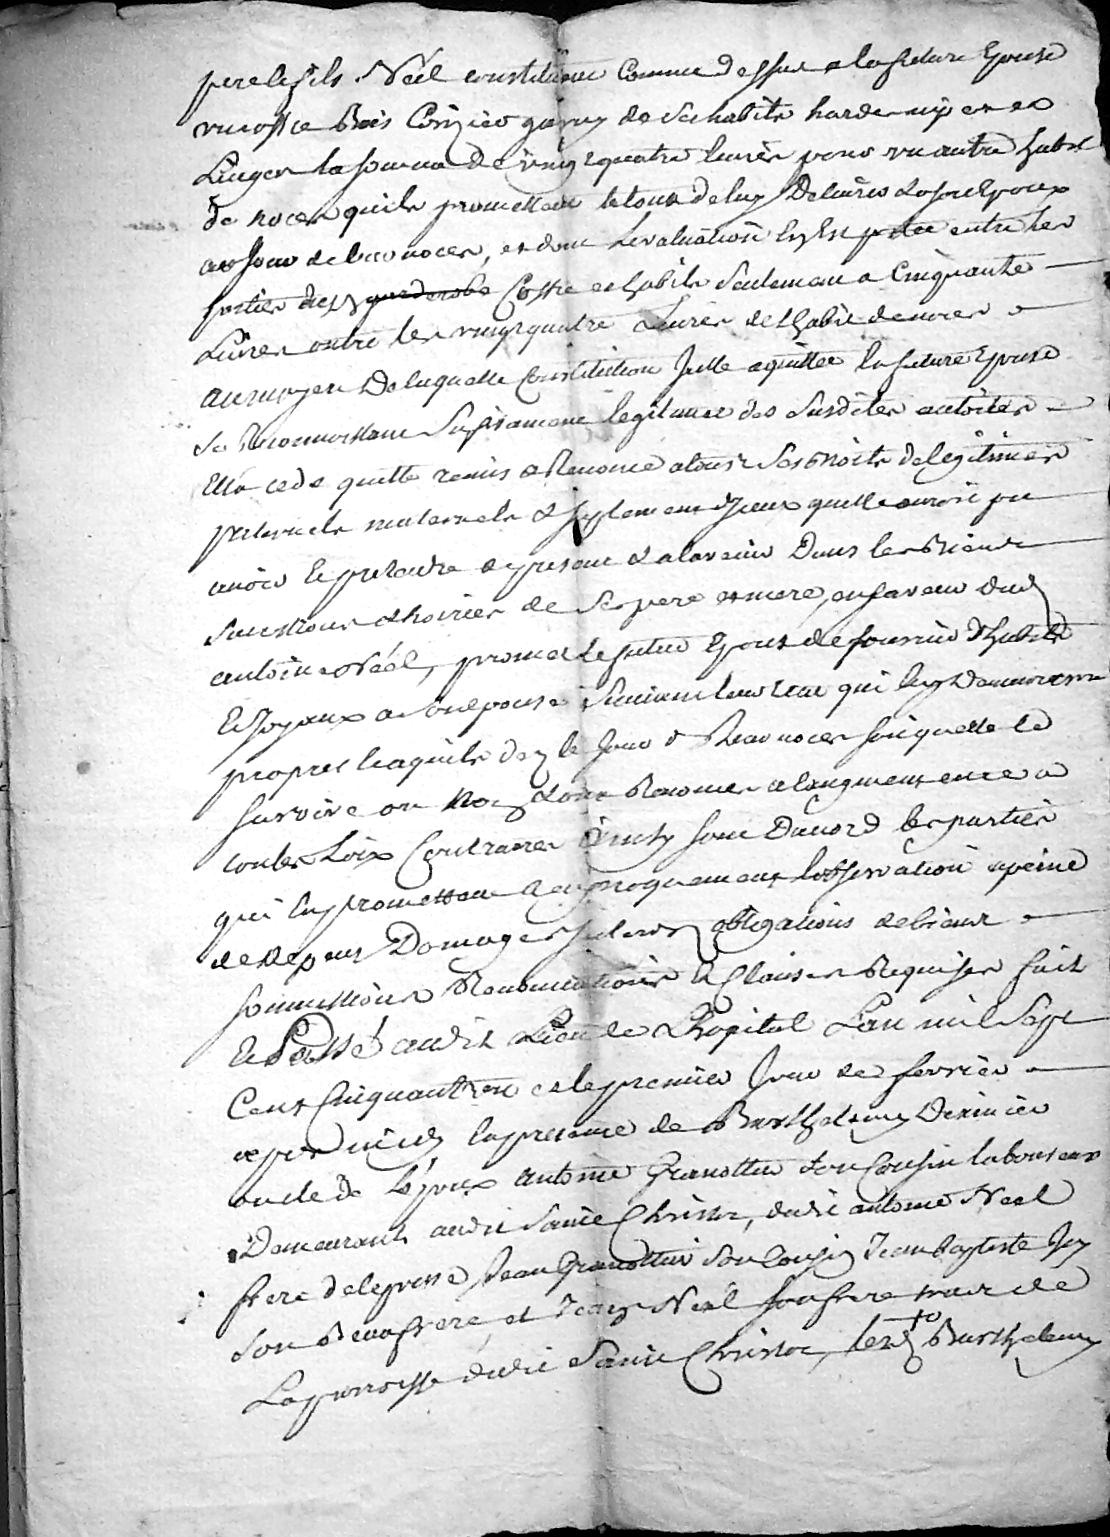 pere et fils Néel constituent comme dessus a la future Epouse
un coffre Bois Cerizier garny de ses habits hardes nipes et
Linges la somme de vingt quatre livres pour un autre habit
de noces quils promettent le tout de luy Delivrer a son Epoux
au jour de leur noces, et dont levaluation En Est faitte entre les
parties des d garderobe Coffre et habits seulement a Cinquante
Livres outre les vingt quatre Livres de Lhabit de noces
au moyen De laquelle Constitution Jcelle aquittée la future Epouse
se Reconnoissant suffisament legitimée des susdites autorités
Elle cede quitte remis et Renonce a tous ses Droits de legitimes
paternels maternels et suplement d'Jceux quelle auroit pu
avoir Et pretendre de present et a lavenir Dans les Biens
successions et hoiries de ses pere et mere, en faveur dud
antoine Néel, promet le futur Epoux de fournir d'habits
Et Joyaux a son epouse suivant leur etat qui luy Demeureront
propres et aquits dez le Jour de leur noces soit quelle le
survive ou non, et ont Renoncé a laugment et a
toutes Loix Contraires ainsy sont Dacord les parties
qui En promettent reciproquement lobservation a peine
de depens Domages interets obligations de biens
soumissions Renonciations Et Clauses Requises fait
Et Passé audit Lieu de Lhopital Lan mil sept
Cent Cinquante et le premier Jour de fevrier
apres midy En presence de Barthelemy Derinier
oncle de l'Epoux antoine Granottier son Cousin laboureurs
Demeurants audit Saint Christor, dudit antoine Néel
frere de lepouse, Jean Granottier son Cousin Jean baptiste
son Beaufrere, et Jean Néel son frere tous de
La parroisse dudit Saint Christor, lesd Barthelemy